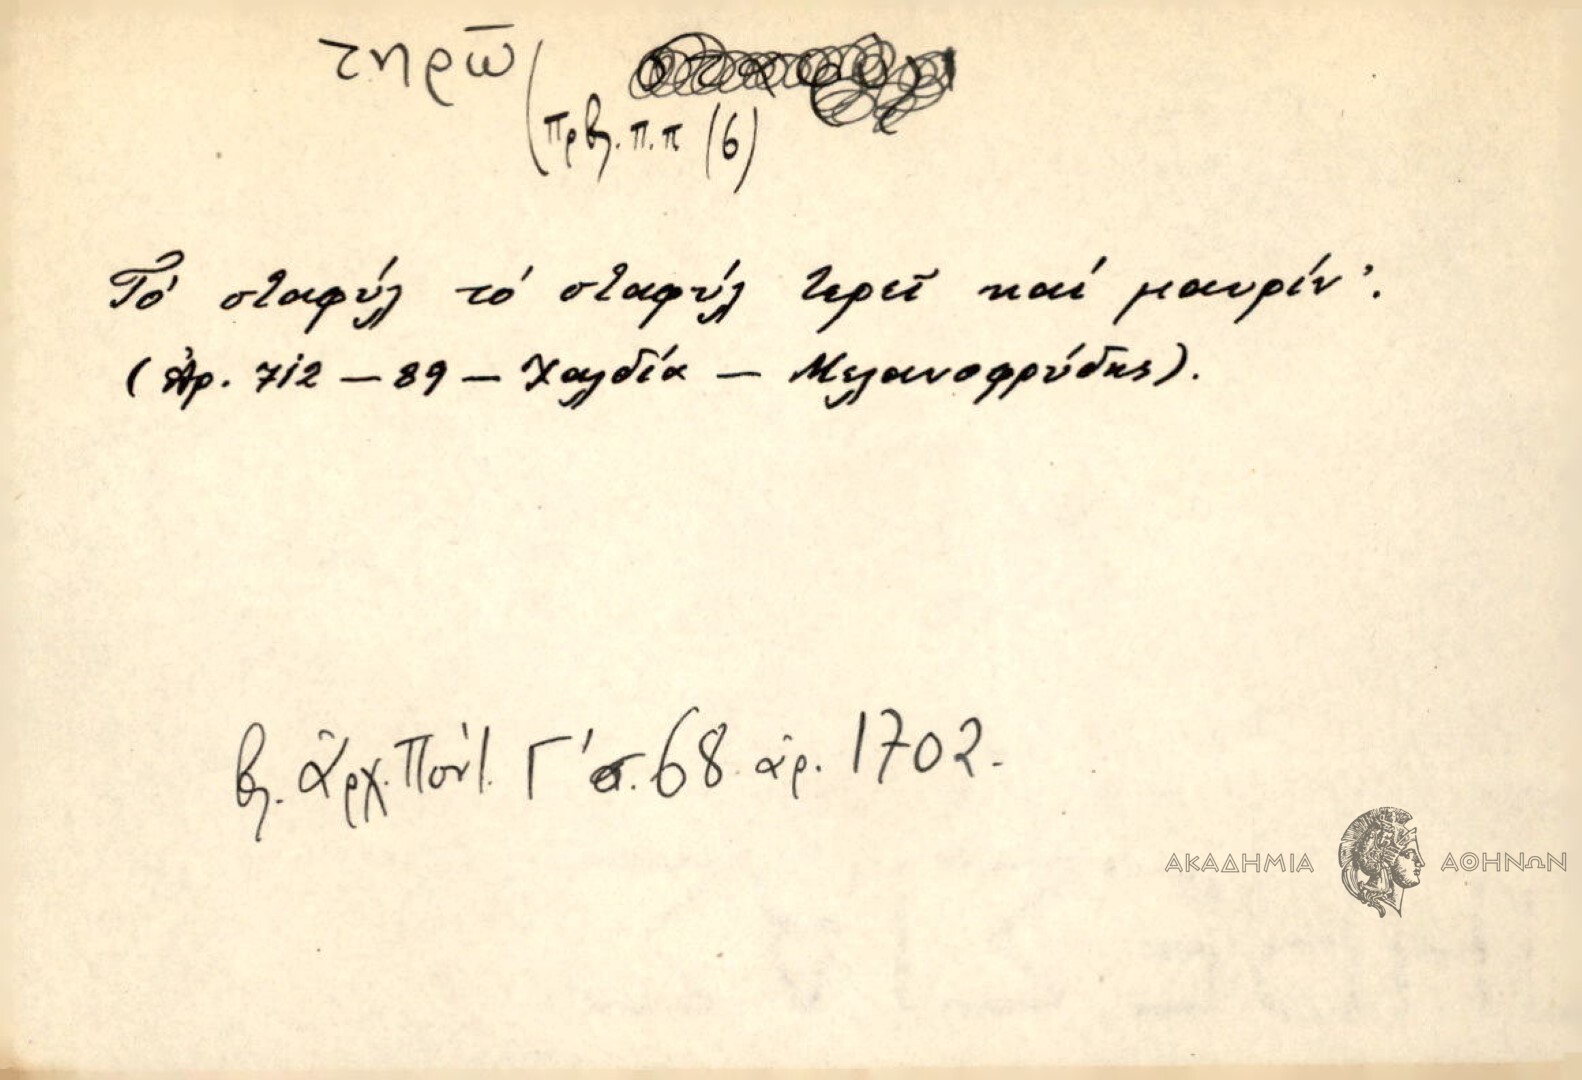 τηρῶ
(πρβλ. π.π (6)
Τό σταφύλ τό σταφύλ τερεῖ καί μαυρίν'.
(Ἀρ. 712 – 89 – Χαλδία – Μελανοφρύδης).
βλ. ἀρχ. Πόντ. Γ' σ. 68 ἀρ. 1702.
ΑΚΑΔΗΜΙΑ ΑΘΗΝΩΝ